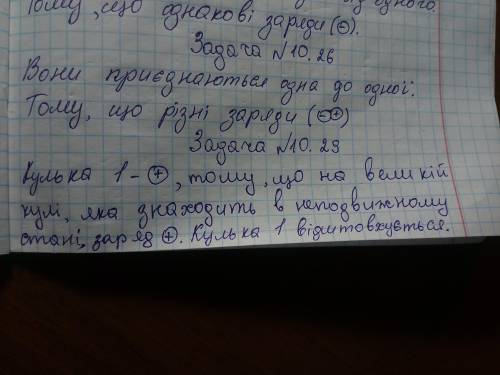 Тому, що однакові заряди (⊖).
Задача №10.26
Вони приєднаються одна до одної.
Тому, що різні заряди (⊖⊕)
Задача №10.29
Кулька 1 - ⊕, тому, що на великій
кулі, яка знаходить в неподвижному
стані, заряд ⊕. Кулька 1 відштовхується.